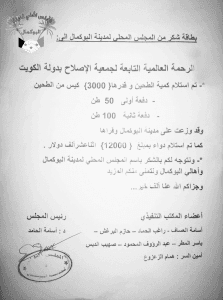 بطاقة شكر من المجلس المحلي لمدينة البوكمال الى:
الرحمة العالمية التابعة لجمعية الإصلاح بدولة الكويت
*- تم استلام كمية الطحين و قدرها (3000) كيس من الطحين
- دفعة أولى 50 طن
- دفعة ثانية 100 طن
وقد وزعت على مدينة البوكمال وقراها
كما تم استلام دواء بمبلغ (12000) اثنا عشر ألف دولار.
*- ونتوجه لكم بالتشكر باسم المجلس المحلي لمدينة البوكمال
وأهالي البوكمال ونتمنى منكم المزيد
وجزاكم الله عنا ألف خير...
أعضاء المكتب التنفيذي
رئيس المجلس
أسامة العساف - راغب الحمد - حازم البرغش -
د: أسامة الحامد
ياسر المطر - عبد الرؤوف المحمود - صهيب الدبس
أمين السر: همام الزعزوع